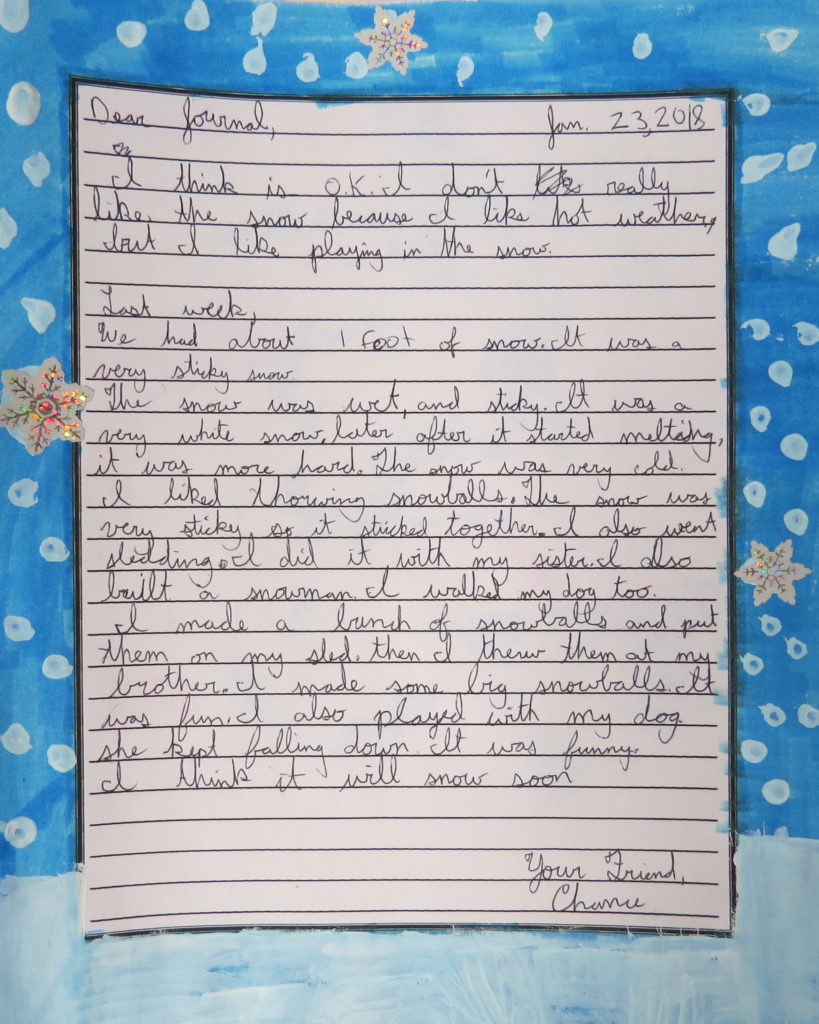 Dear Journal, Jan. 23, 2018
I think is O.K. I don't really
like the snow because I like hot weather,
but I like playing in the snow.
Last week,
We had about 1 foot of snow. It was a
very sticky snow.
The snow was wet, and sticky. It was a
very white snow, later after it started melting,
it was more hard. The snow was very cold.
I liked thorwing snowballs. The snow was
very sticky so it sticked together. I also went
sledding. I did it with my sister. I also
built a snowman. I walked my dog too.
I made a bunch of snowballs and put
them on my sled. then I therw them at my
brother. I made some big snowballs. It
was fun. I also played with my dog.
she kept falling down. It was funny.
I think it will snow soon
Your Friend,
Chance